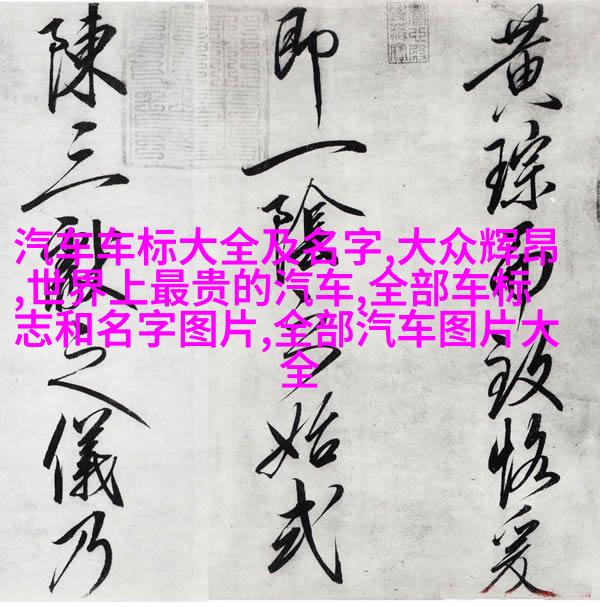 汽车车标大全及名字,大众辉昂
,世界上最贵的汽车,全部车标
志和名字图片,全部汽车图片大
全
黄琮而致恪爰
即一陰之始式
陳三獻之儀乃